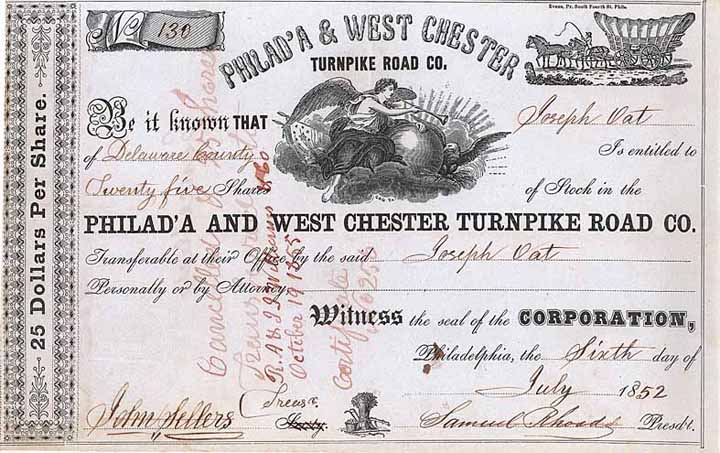 Evans, Pr. South Fourth St. Phila.
No 130
PHILAD'A & WEST CHESTER
TURNPIKE ROAD CO.
Be it known THAT Joseph Oat
of Delaware County Is entitled to
Twenty five Shares of Stock in the
PHILAD'A AND WEST CHESTER TURNPIKE ROAD CO.
Transferable at their Office by the said Joseph Oat
Personally or by Attorney
Witness the seal of the CORPORATION,
Philadelphia, the Sixth day of
July 1852
John Sellers Treasr. Secty. Samuel Rhoads Presdt.
25 Dollars Per Share.
Cancelled Shares
October 19 1855
Certificate